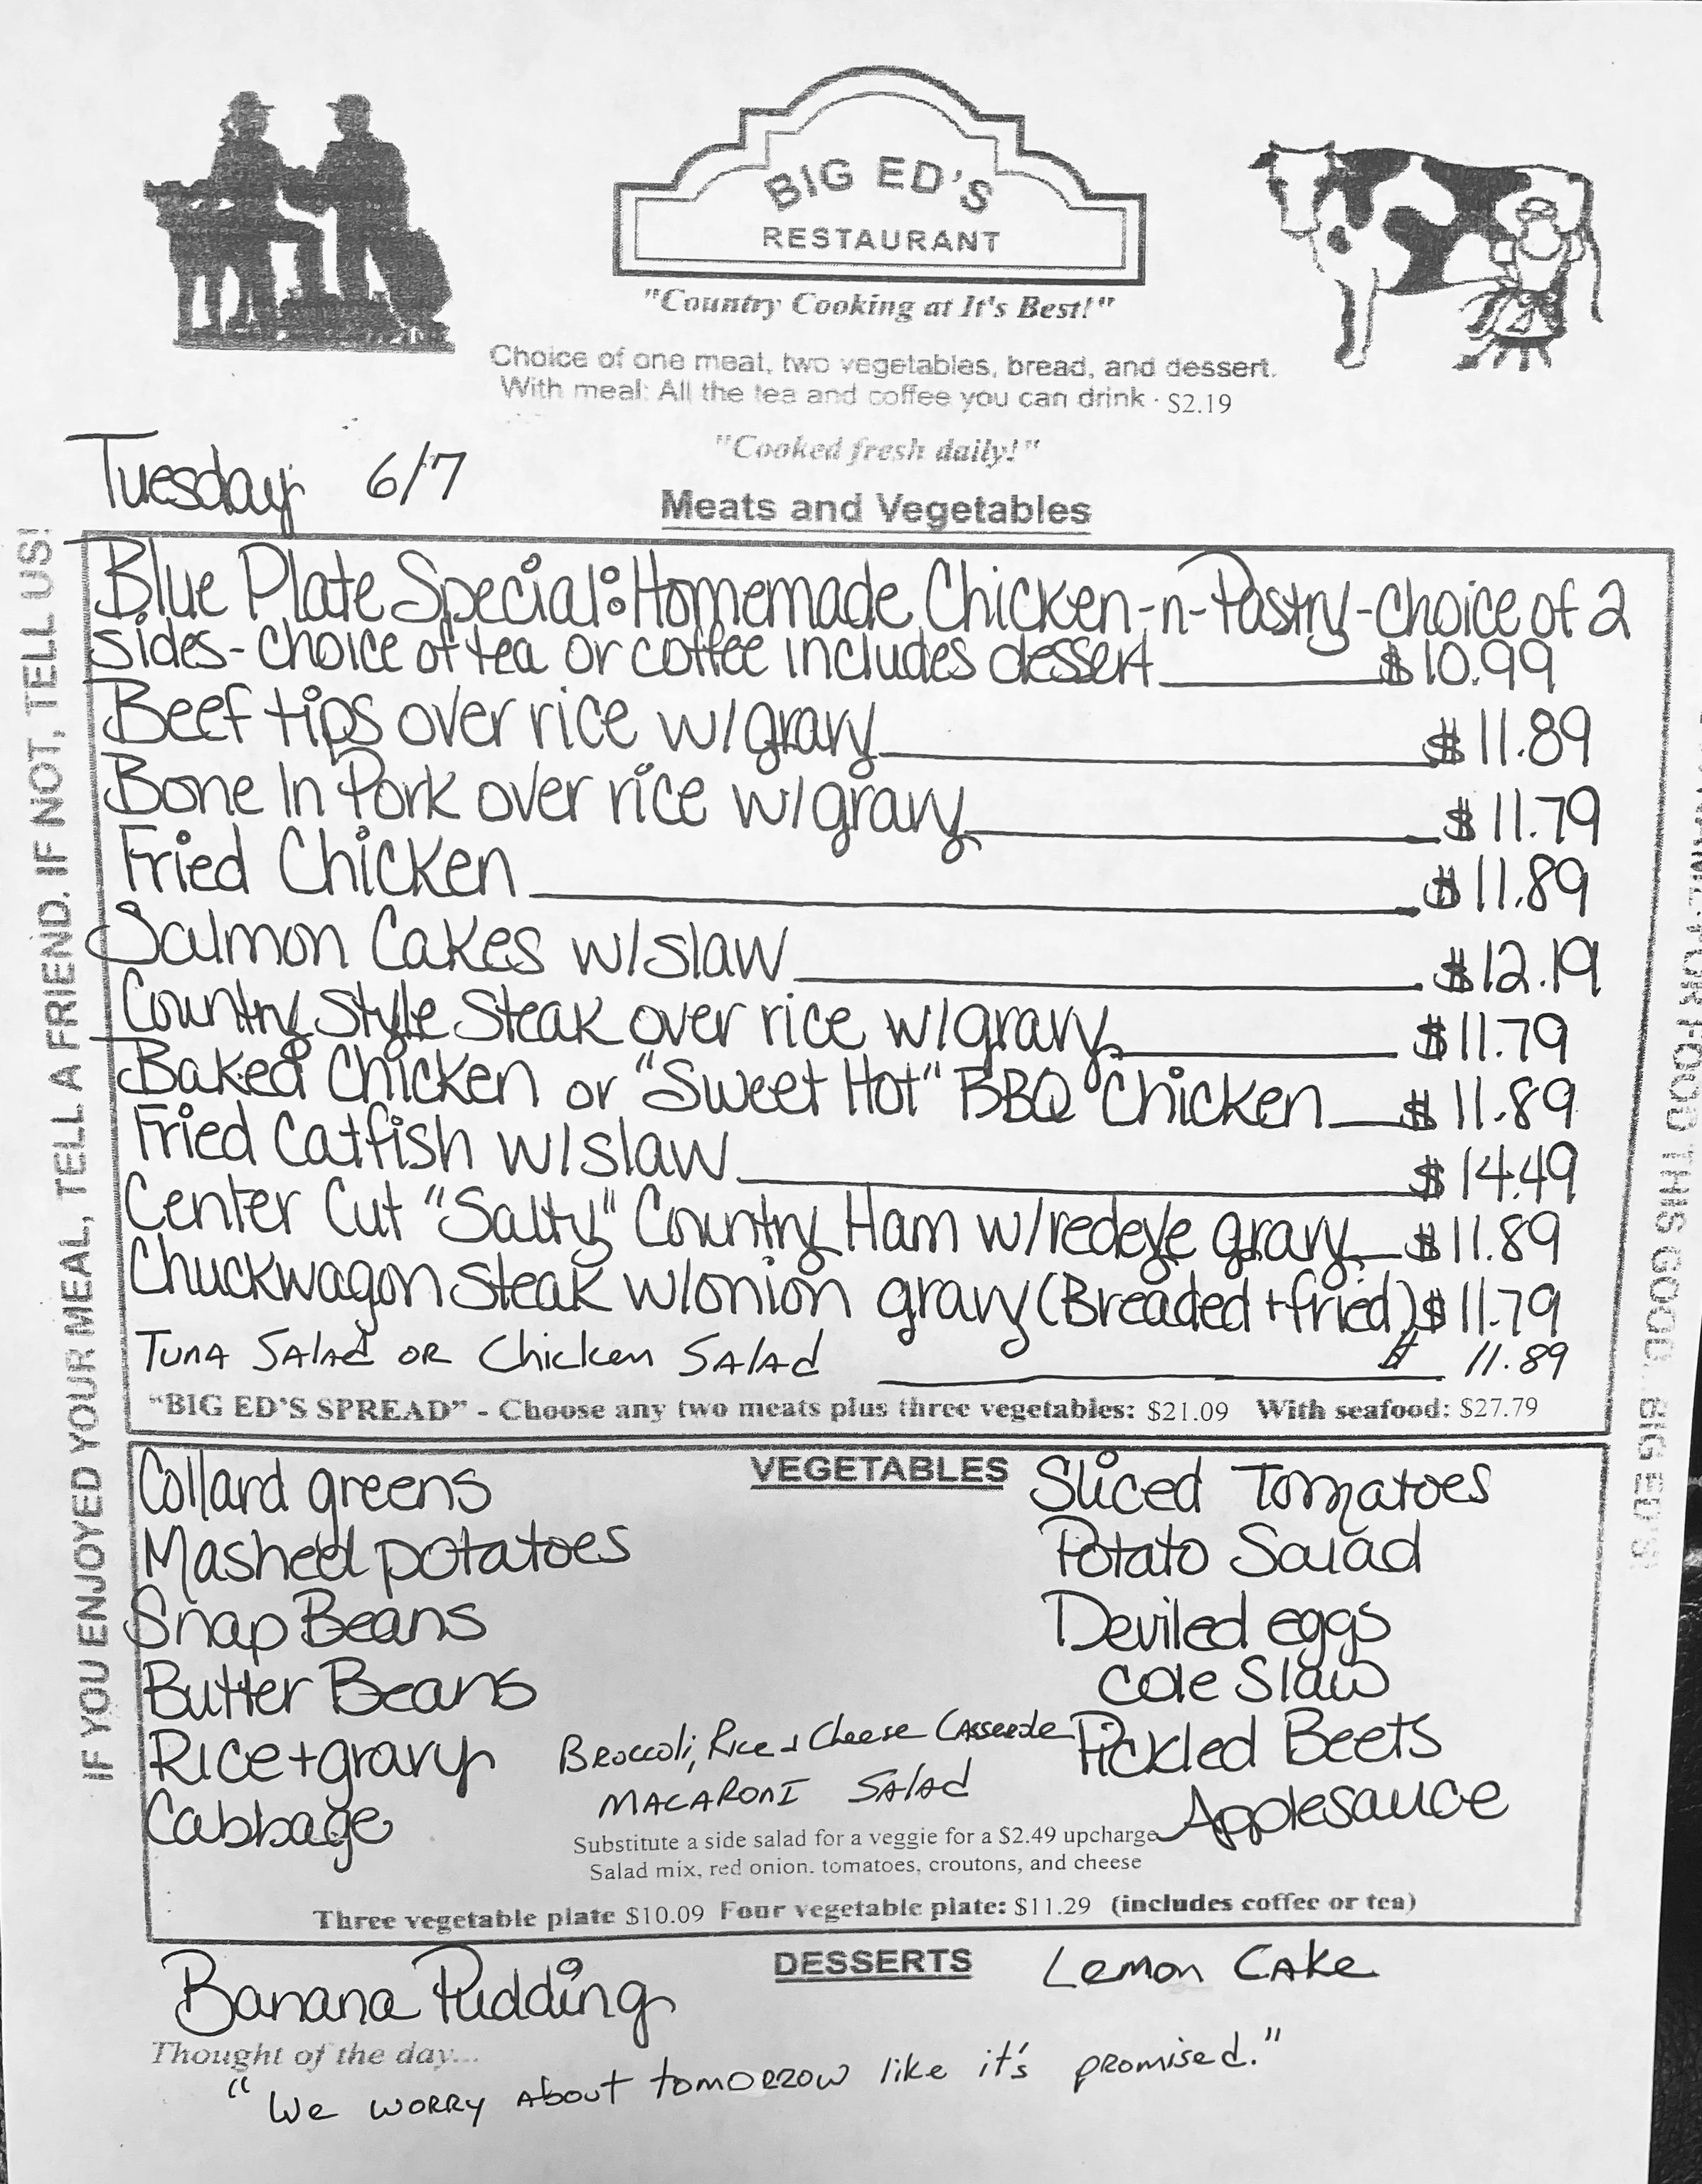 BIG ED'S
RESTAURANT
"Country Cooking at It's Best!"
Choice of one meat, two vegetables, bread, and dessert.
With meal: All the tea and coffee you can drink · $2.19
"Cooked fresh daily!"
Tuesday 6/7
Meats and Vegetables
Blue Plate Special: Homemade Chicken-n-Pastry-choice of 2
sides-choice of tea or coffee includes dessert $10.99
Beef tips over rice w/gravy $11.89
Bone In Pork over rice w/gravy $11.79
Fried Chicken $11.89
Salmon Cakes w/slaw $12.19
Country Style Steak over rice w/gravy $11.79
Baked Chicken or "Sweet Hot" BBQ Chicken $11.89
Fried Catfish w/slaw $14.49
Center Cut "Salty" Country Ham w/redeye gravy $11.89
Chuckwagon Steak w/onion gravy (Breaded + fried) $11.79
Tuna Salad or Chicken Salad $11.89
"BIG ED'S SPREAD" - Choose any two meats plus three vegetables: $21.09 With seafood: $27.79
VEGETABLES
Collard greens
Mashed potatoes
Snap Beans
Butter Beans
Rice + gravy
Cabbage
Broccoli, Rice + Cheese Casserole
Macaroni Salad
Sliced Tomatoes
Potato Salad
Deviled eggs
Cole Slaw
Pickled Beets
Applesauce
Substitute a side salad for a veggie for a $2.49 upcharge
Salad mix, red onion. tomatoes, croutons, and cheese
Three vegetable plate $10.09 Four vegetable plate: $11.29 (includes coffee or tea)
DESSERTS
Banana Pudding
Lemon Cake
Thought of the day...
"We worry about tomorrow like it's promised."
IF YOU ENJOYED YOUR MEAL, TELL A FRIEND. IF NOT, TELL US!
FOR FOOD THIS GOOD... BIG ED'S